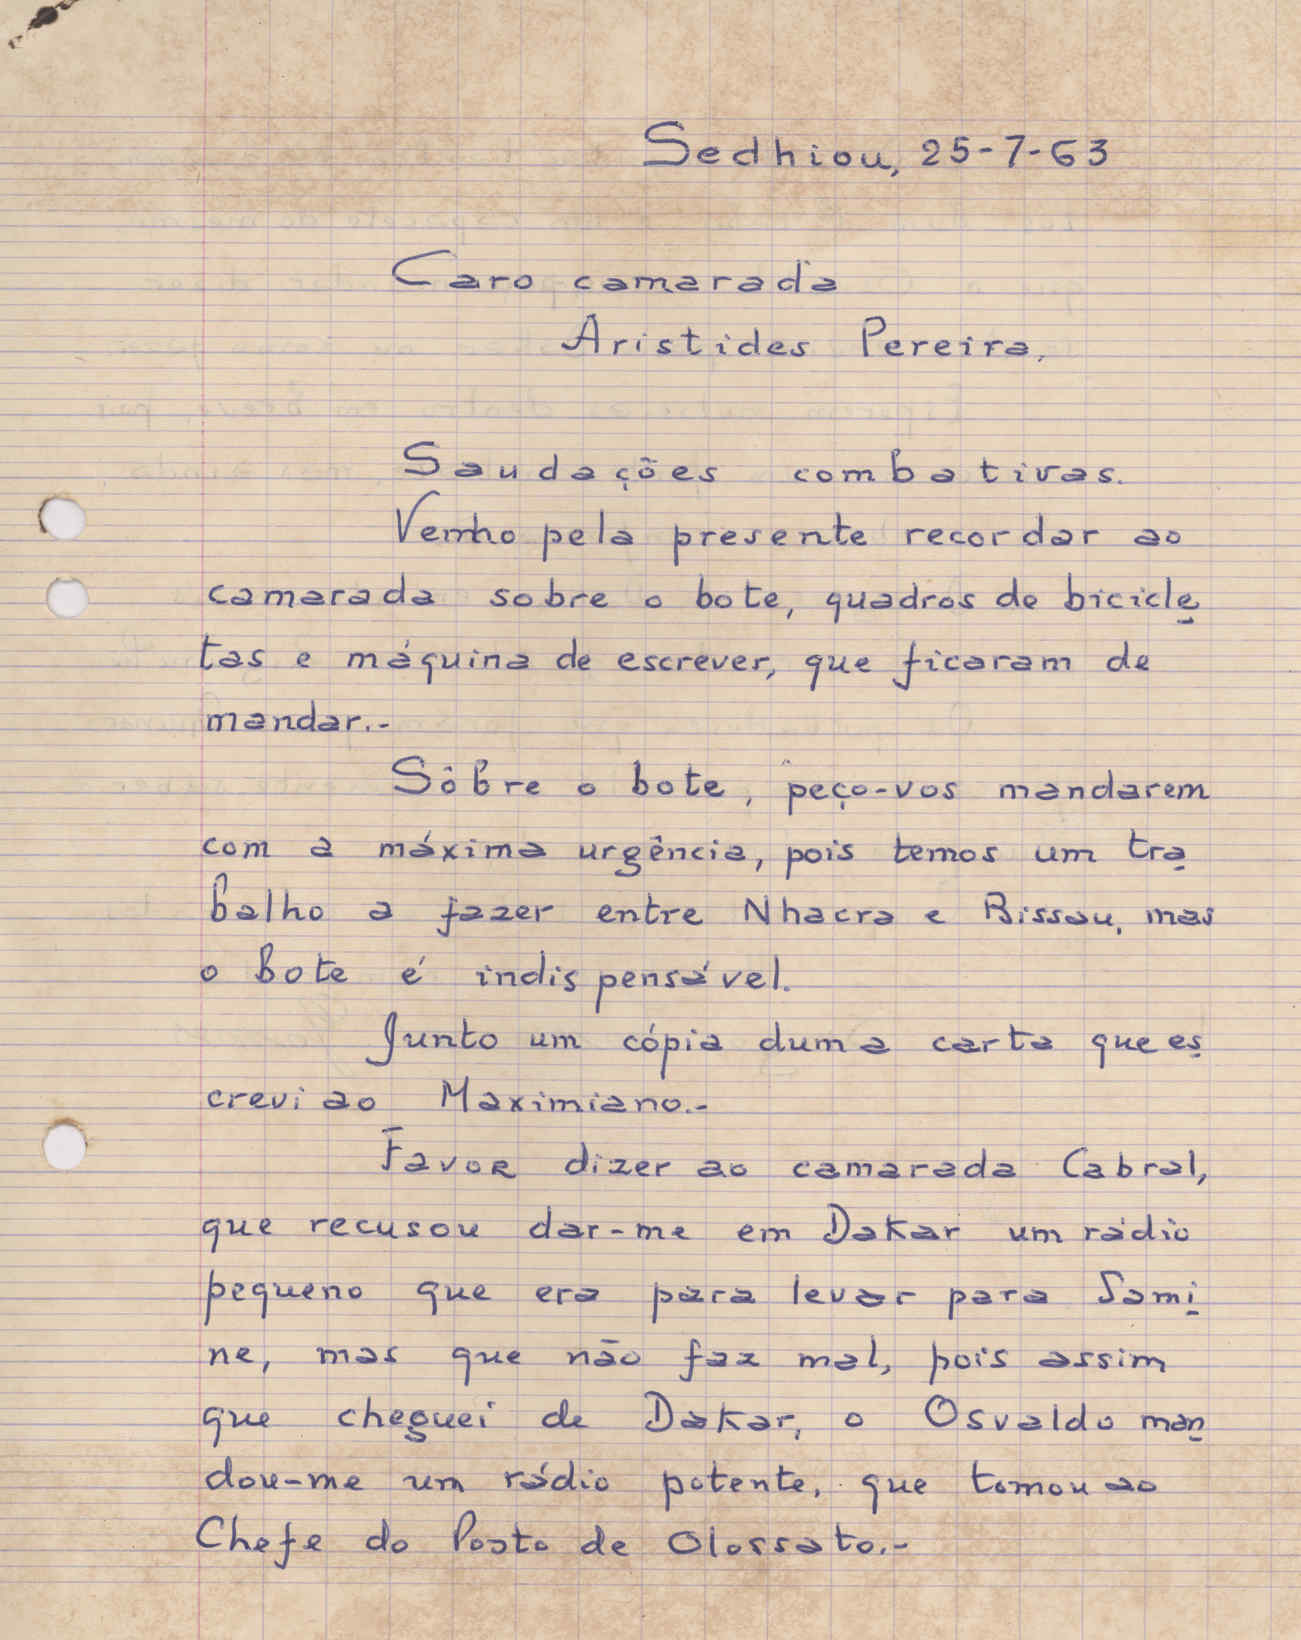 Sedhiou, 25-7-63
Caro camarada
Aristides Pereira.
Saudações combativas.
Venho pela presente recordar ao
camarada sobre o bote, quadros de bicicle
tas e máquina de escrever, que ficaram de
mandar.-
Sôbre o bote, peço-vos mandarem
com a máxima urgência, pois temos um tra
balho a fazer entre Nhacra e Bissau, mas
o bote é indispensável.
Junto um cópia duma carta que es
crevi ao Maximiano.-
Favor dizer ao camarada Cabral,
que recusou dar-me em Dakar um rádio
pequeno que era para levar para Sami
ne, mas que não faz mal, pois assim
que cheguei de Dakar, o Osvaldo man
dou-me um rádio potente, que tomou ao
Chefe do Posto de Olossato.-